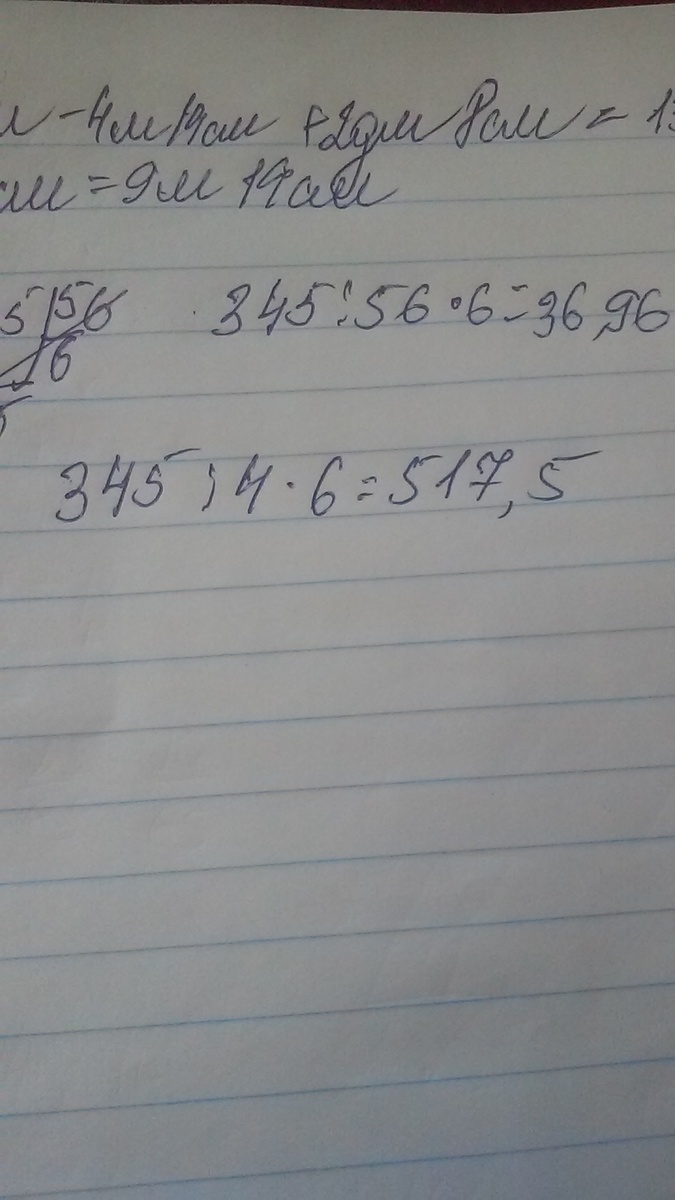 м - 4м 19см + 2дм 8см = 13
см = 9м 19см
5 56 345 : 56 · 6 = 36,96
16
5
345 : 4 · 6 = 517,5